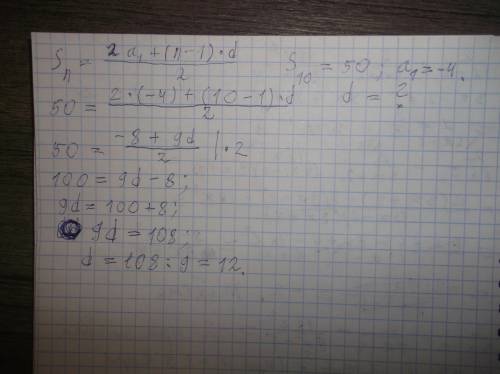 Sₙ = (2a₁ + (n-1)·d)/2    S₁₀ = 50; a₁ = -4.
50 = (2·(-4) + (10-1)·d)/2    d = ?
50 = (-8 + 9d)/2 |·2
100 = 9d - 8;
9d = 100 + 8;
9d = 108;
d = 108 : 9 = 12.